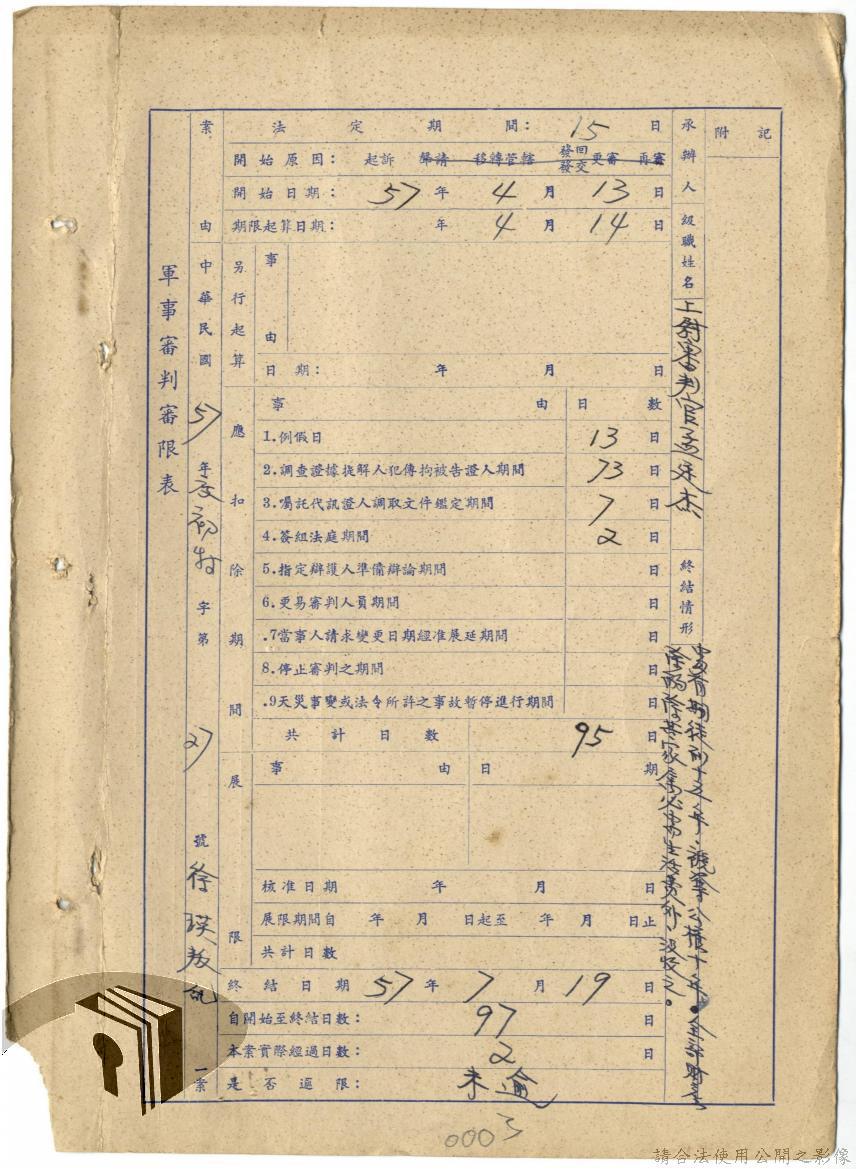 附記
承辦人級職姓名
上尉審判官孟廷杰
終結情形
處有期徒刑十五年，褫奪公權十年。全部財產
除酌留其家屬必需生活費外，沒收之。
法定期間：15日
開始原因：起訴 聲請 移轉管轄 發回發交更審 再審
開始日期：57年4月13日
期限起算日期：年4月14日
另行起算
事由
日期：年月日
應扣除期間
事由 日數
1.例假日 13日
2.調查證據提解人犯傳拘被告證人期間 73日
3.囑託代訊證人調取文件鑑定期間 7日
4.簽組法庭期間 2日
5.指定辯護人準備辯論期間 日
6.更易審判人員期間 日
.7當事人請求變更日期經准展延期間 日
8.停止審判之期間 日
.9天災事變或法令所許之事故暫停進行期間 日
共計日數 95
展限
事由 日期
核准日期 年月日
展限期間自 年月日起至 年月日止
共計日數
終結日期 57年7月19日
自開始至終結日數：97日
本案實際經過日數：2日
是否逾限：未逾
案由 中華民國57年度初特字第27號徐瑛叛亂一案
軍事審判審限表
0003
請合法使用公開之影像